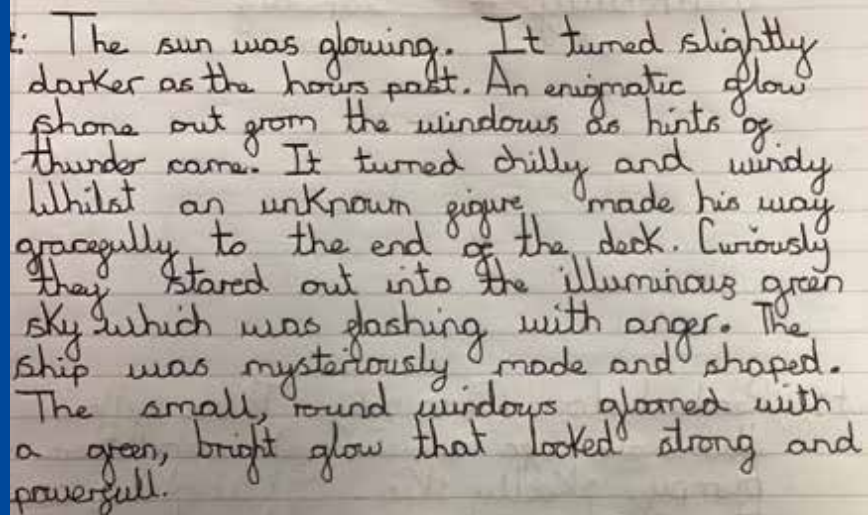 : The sun was glowing. It turned slightly
darker as the hours past. An enigmatic glow
shone out from the windows as hints of
thunder came. It turned chilly and windy
Whilst an unknown figure made his way
gracefully to the end of the deck. Curiously
they stared out into the illuminous green
sky which was flashing with anger. The
ship was mysteriously made and shaped.
The small, round windows gloamed with
a green, bright glow that looked strong and
powerfull.